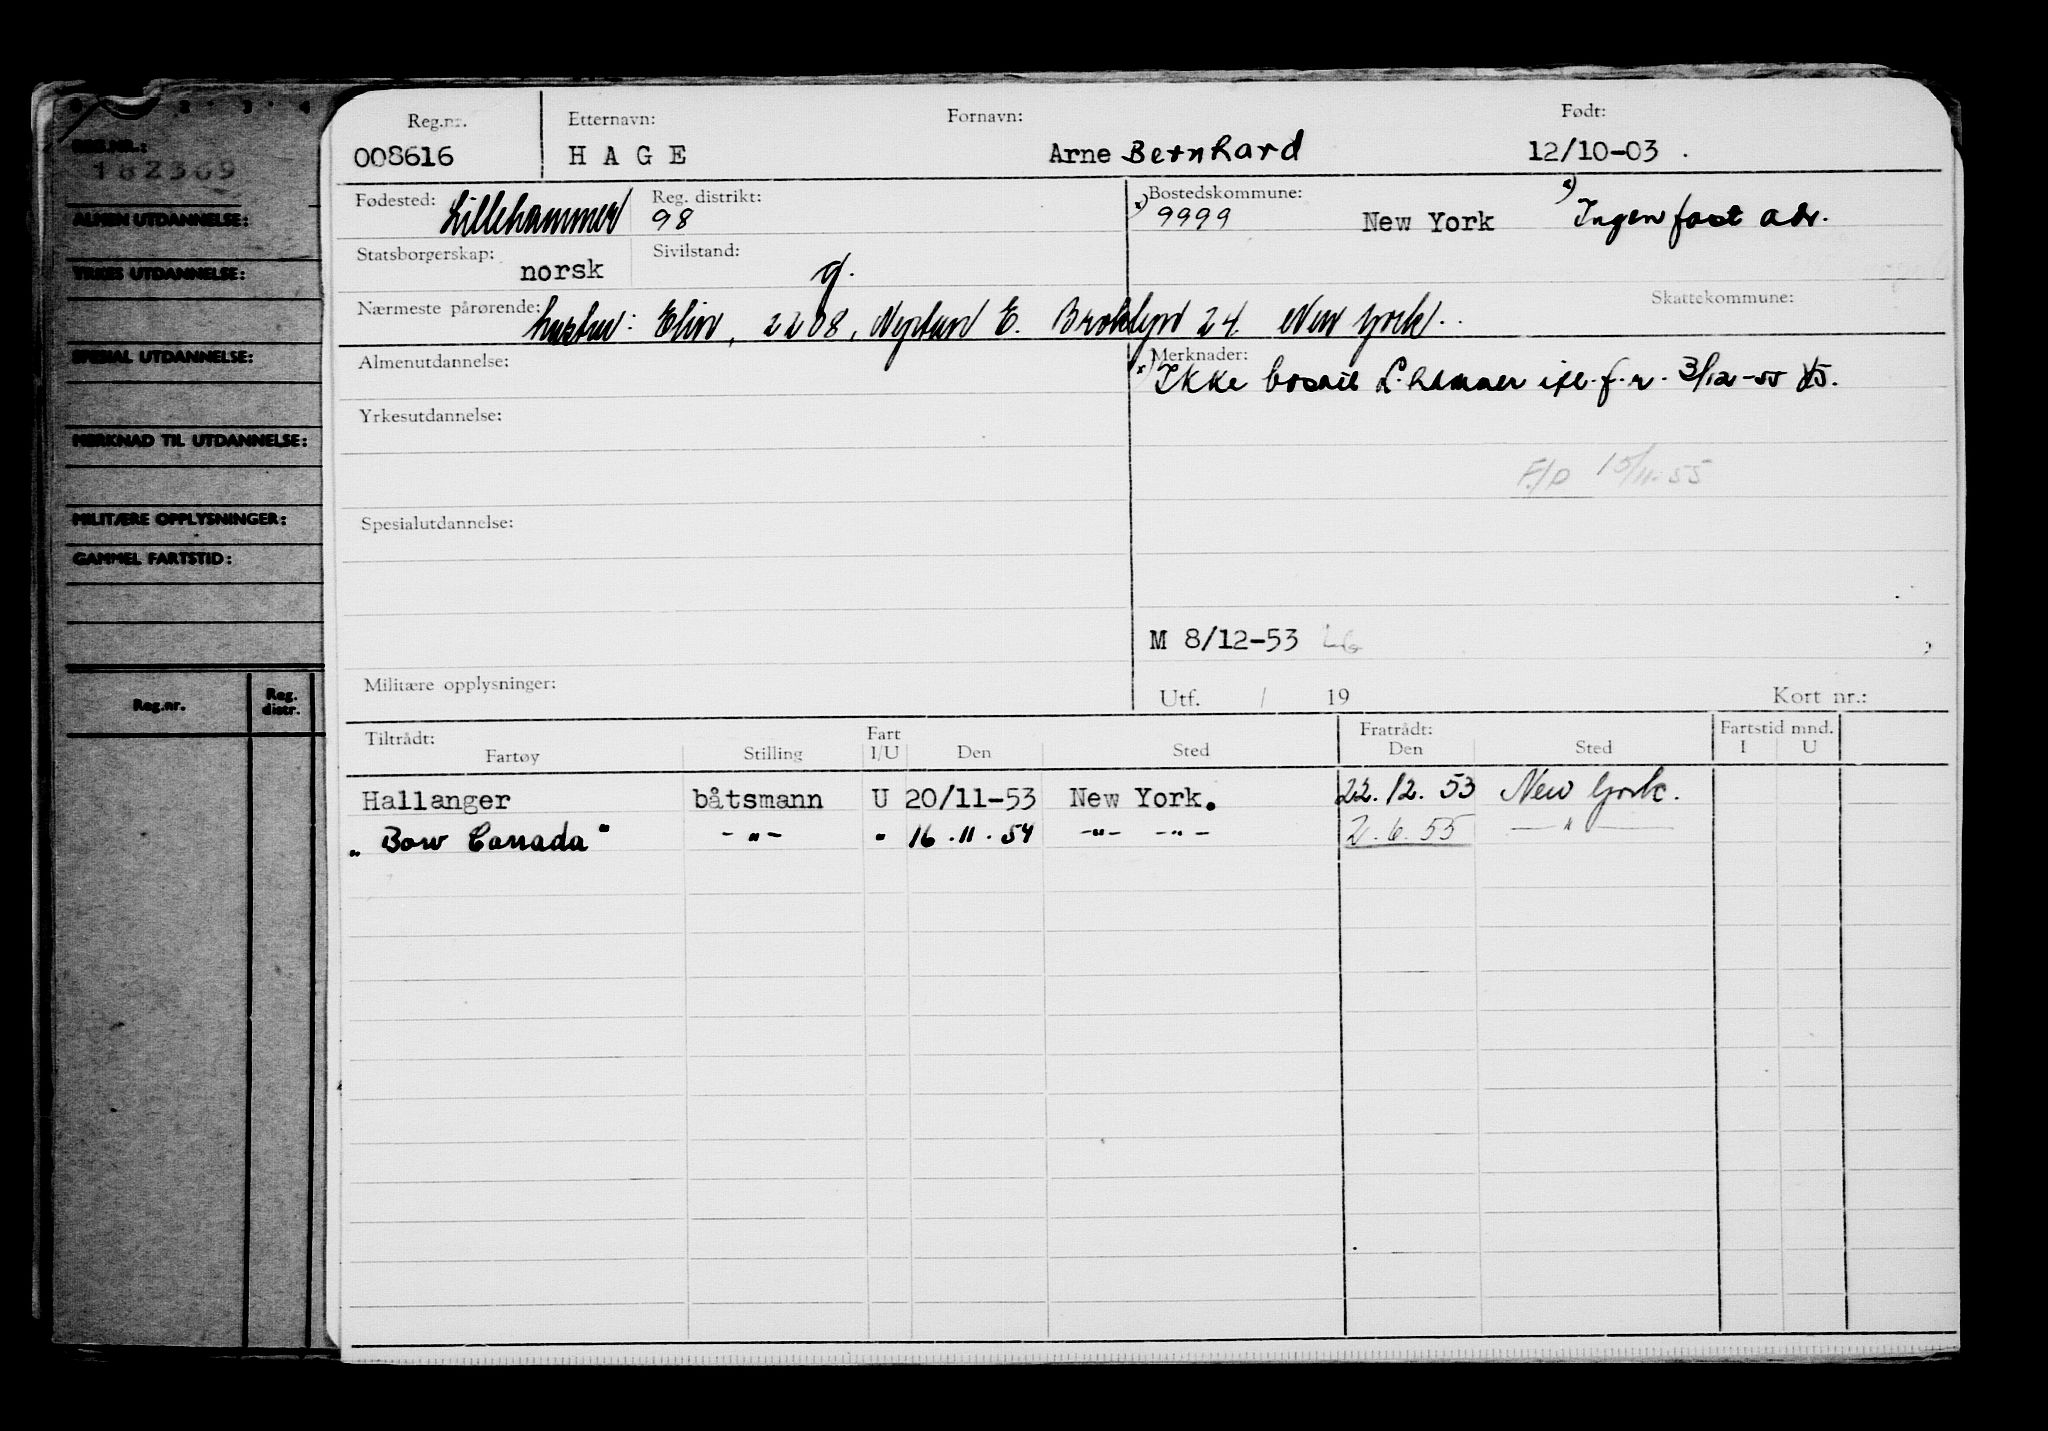 REG.NR.:
182369
ALMEN UTDANNELSE:
YRKES UTDANNELSE:
SPESIAL UTDANNELSE:
MERKNAD TIL UTDANNELSE:
MILITÆRE OPPLYSNINGER:
GAMMEL FARTSTID:
Reg.nr. Reg. distr.
Reg.nr. Etternavn: Fornavn: Født:
008616 HAGE Arne Bernhard 12/10-03 .
Fødested: Lillehammer Reg. distrikt: 98 x) Bostedskommune: 9999 New York x) Ingen fast adr.
Statsborgerskap: norsk Sivilstand: g.
Nærmeste pårørende: hustru: Elin, 2208, Neptun E. Broklyn 24. New York.. Skattekommune:
Almenutdannelse: x) Merknader: Ikke bosatt L.hammer 3/12-55
Yrkesutdannelse:
F/P 15/11-55
Spesialutdannelse:
M 8/12-53
Militære opplysninger: Utf. / 19 Kort nr.:
Tiltrådt: Fart Fratrådt: Fartstid mnd.
Fartøy Stilling I/U Den Sted Den Sted I U
Hallanger båtsmann U 20/11-53 New York. 22.12.53 New York.
"Bow Canada" -"- " 16.11.54 -"- -"- 2.6.55 -"-